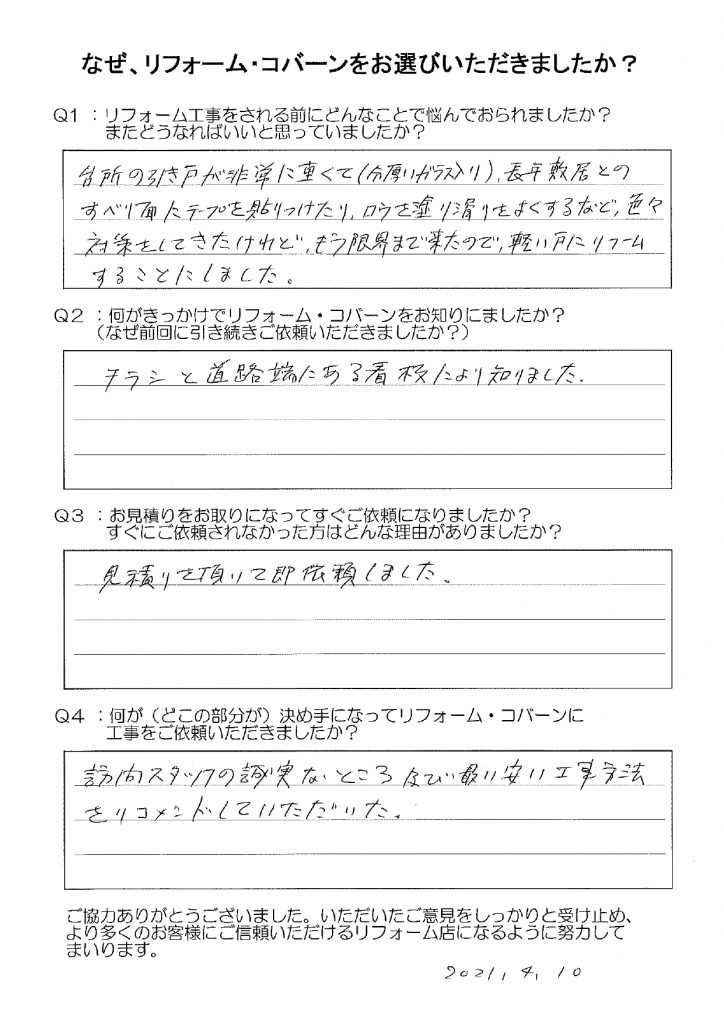 なぜ、リフォーム・コバーンをお選びいただきましたか？
Q1：リフォーム工事をされる前にどんなことで悩んでおられましたか？
またどうなればいいと思っていましたか？
台所の引き戸が非常に重くて(分厚いガラス入り)、長年敷居との
すべり面にテープを貼りつけたり、ロウを塗り滑りをよくするなど、色々
対策をしてきたけれど、もう限界まで来たので、軽い戸にリフォーム
することにしました。
Q2：何がきっかけでリフォーム・コバーンをお知りにましたか？
（なぜ前回に引き続きご依頼いただきましたか？）
チラシと道路端にある看板により知りました.
Q3：お見積りをお取りになってすぐご依頼になりましたか？
すぐにご依頼されなかった方はどんな理由がありましたか？
見積りを頂いて即依頼しました。
Q4：何が（どこの部分が）決め手になってリフォーム・コバーンに
工事をご依頼いただきましたか？
訪問スタッフの誠実なところ及び最い安い工事方法
をリコメンドしていただいた。
ご協力ありがとうございました。いただいたご意見をしっかりと受け止め、
より多くのお客様にご信頼いただけるリフォーム店になるように努力して
まいります。
2021, 4, 10